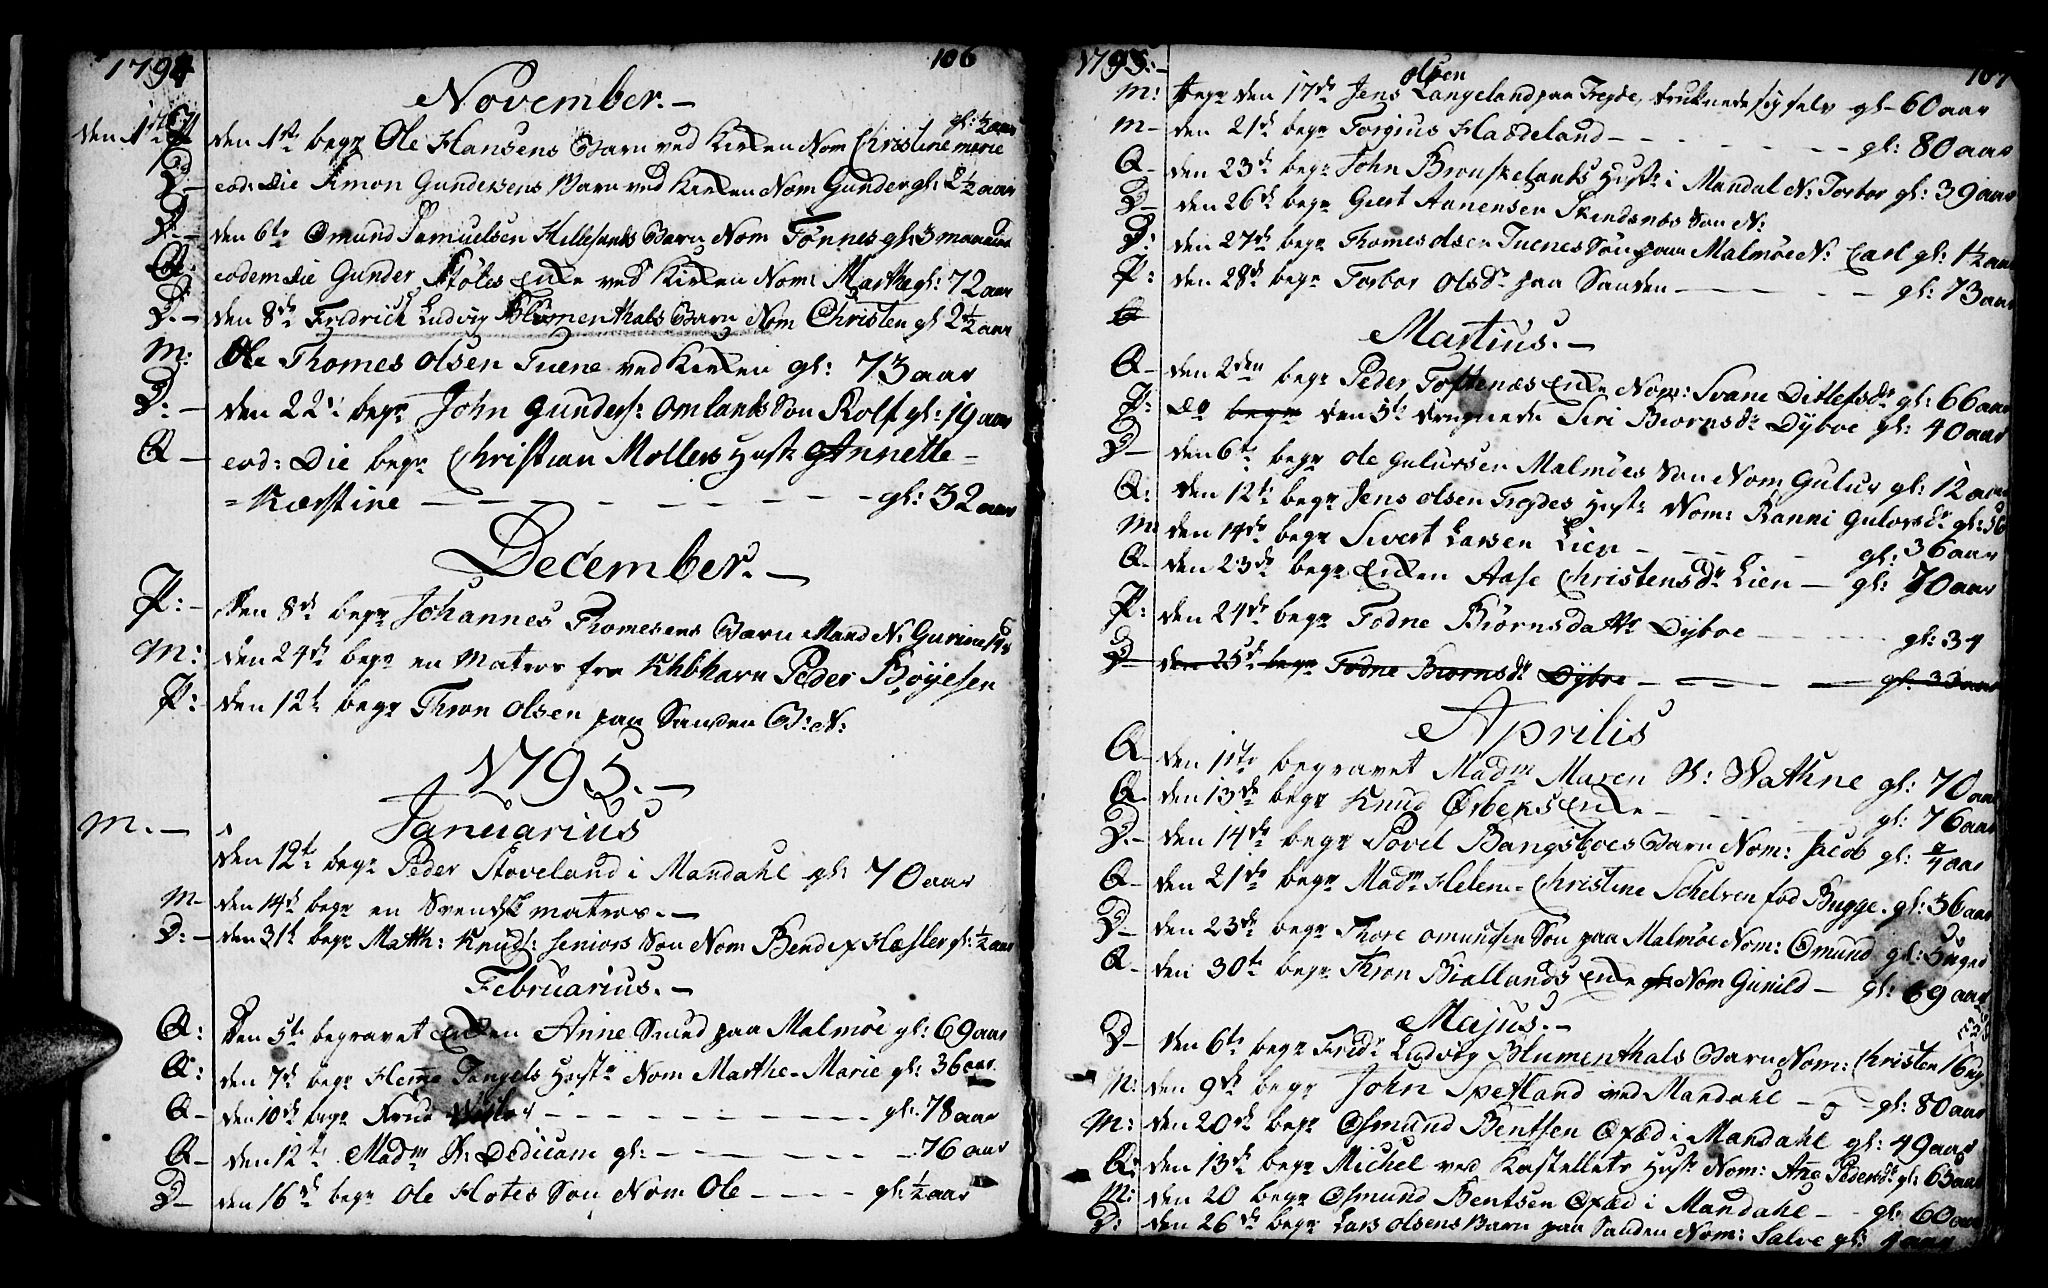 1794
106
November. –
den 1st begr Ole Hansens Barn ved Kirken Nom Christine marie gl: ½ aar
D – eod: die Simon Gundersens Barn ved Kirken Nom Gunder gl: 2½ aar
D. – den 6te Omund Samuelsen Hillesunds Barn Nom Tønnes gl: 3 maaneder
Q: eodem die Gunder Støles Enke ved Kirken Nom: Marthe gl: 72 aar
D. – den 8de Fredrich Ludvig Blumenthals Barn Nom Christen gl 2½ aar
M: Ole Thomes Olsen Tuene ved Kirken gl: 73 aar
D: – den 22d begr John Gunders: Omlands Søn Rolf gl: 19 aar
Q – eod: Die begr Christian Mollers Hust: Annette =
= Kierstine – – – – – – – – gl: 32 aar
December. –
P: – den 8de begr Johannes Thomesens Barn Mand N: Gurine
M: den 24de begr en Matros fra Khbhavn Peder Bøyesen
P: den 12te begr Thron Olsen paa Sanden B: N:
1795. –
Januarius
M. – den 12te begr Peder Stoveland i Mandahl gl: 70 aar
M – den 14de begr en Svensk matros. –
D: – den 31te begr Matth: Knuds: seniors Søn Nom Bendix Hæsler gl: ½ aar
Februarius. –
Q: Den 5te begravet Enken Anne Smed paa Malmøe gl: 69 aar
Q: den 7de begr Heme Tangels Hust: Nom Marthe-Marie gl: 36 aar.
Q – den 10de begr Frue – – – – – – gl: 78 aar
Q – den 12te Madm S: Dedicam gl: – – – – – – 76 aar
D – den 16de begr Ole Flotes Søn Nom Ole – – – – gl: ½ aar
1795: –
107
M: begr den 17de Jens Olsen Langeland paa Tregde, druknede sig selv gl – 60 aar
M – den 21de begr Torgius Haadeland – – – – – – – gl: 80 aar
Q – den 23de begr John Brunskelands Hust: i Mandal N: Torbor gl: 39 aar
D – den 26de begr Giert Aanensen Skindsnes Søn N:
D: den 27de begr Thomes Olsen Tuenes Søn paa Malmøe N: Carl gl: 1½ aar
P: den 28de begr Torbor Olsdr paa Sanden – – – – gl: 73 aar
Martius. –
Q – den 2den begr Peder Toftenæs Enke Nom: Svane Ditlefsdr gl: 66 aar
P: do begr den 5te druknede Siri Biørnsdr Dyboe gl: 40 aar
D – den 6te begr Ole Gulursen Malmøes Søn Nom Gulur gl: 12 aar
Q: den 12te begr Jens Olsen Tregdes Hust: Nom: Ranni Gulovsdr gl: 56
M: den 14de begr Sivert Larsen Lien – – – – – gl: 36 aar
Q – den 23de begr Enken Aase Christensdr Lien – gl: 70 aar
P: den 24de begr Todne Biørnsdatter Dyboe – – – – gl: 34
D – den 25de begr Todne Biørnsdr Dyboe – – – – gl: 33 aar
Aprilis
Q – den 1ste begravet Madm Maren S: Wathne gl: 70 aar
Q – den 13de begr Knud Ørbeks Enke – – – – – gl: 76 aar
D. – den 14de begr Povel Bangsboes Barn Nom: Jacob gl: aar
Q – den 21de begr Madm Helene Christine Schelven fød Bugge. gl: 36 aar
D – den 23de begr Thore Omundsen Søn paa Malmøe Nom: Omund gl: 3 uger
Q – den 30te begr Thron Biellands Enke Nom Gunild – gl: 69 aar
Majus. –
D – den 6te begr Fredr Ludvig Blumenthals Barn Nom: Christen 16 ug
M: den 9de begr John Spetland ved Mandahl – – gl: 80 aar
M: den 20de begr Osmund Bentsen Ofæd i Mandahl gl: 49 aar
Q: den 13de begr Michel ved Kastellets Hust: Nom: Ane Pedersdr gl: 63 aar
M: den 20 begr Osmund Bentsen Ofæd i Mandahl – – gl: 60 aar
D: den 26de begr Lars Olsens Barn paa Sanden Nom: Salve gl: 1 aar